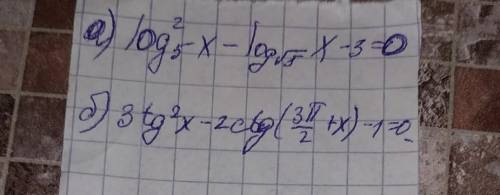 а) log₅² x - log_√5 x - 3 = 0
б) 3 tg²x - 2 ctg(3π/2 + x) - 1 = 0.